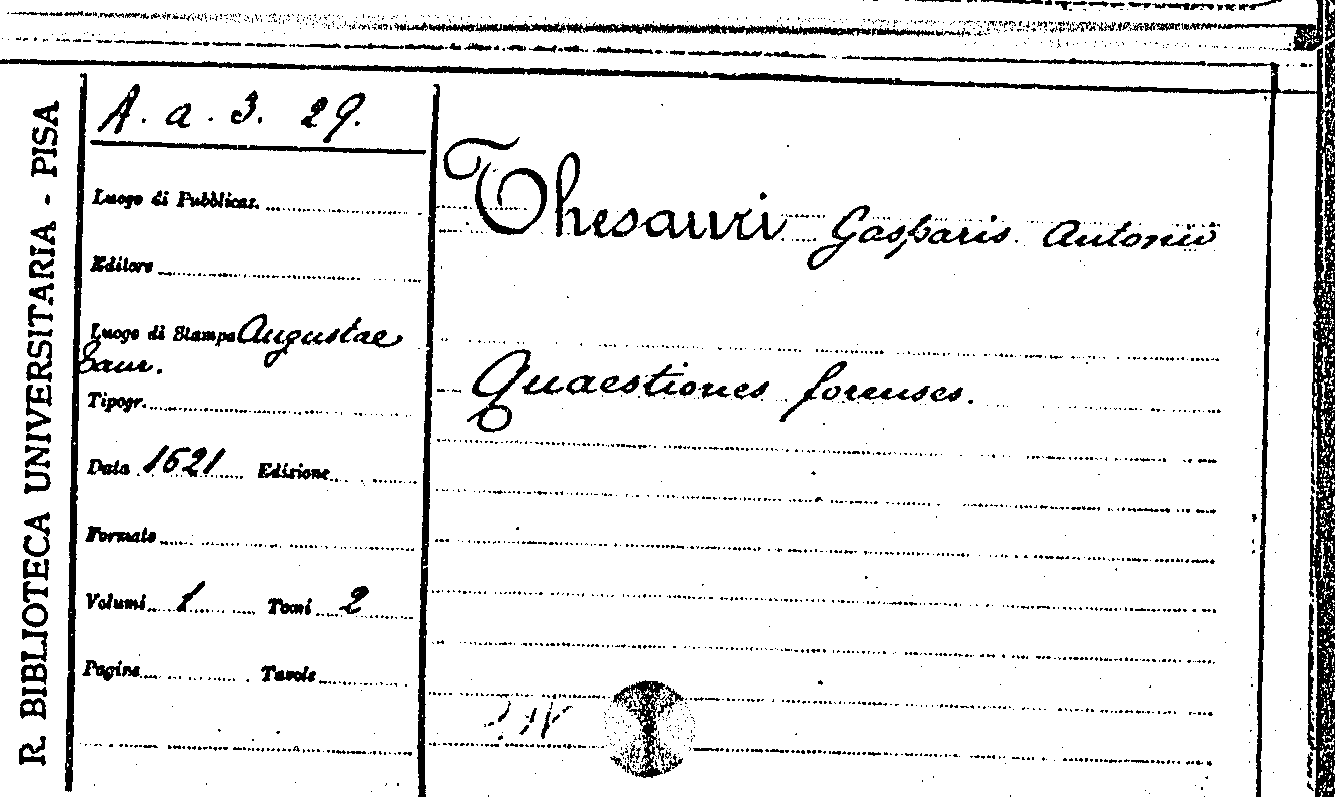 R. BIBLIOTECA UNIVERSITARIA - PISA
A. a. 3. 29.
Luogo di Pubblicaz.
Editore
Luogo di Stampa Augustae
Taur.
Tipogr.
Data 1621 Edizione
Formato
Volumi 1 Tomi 2
Pagine Tavole
Thesauri Gasparis Antonii
Quaestiones forenses.